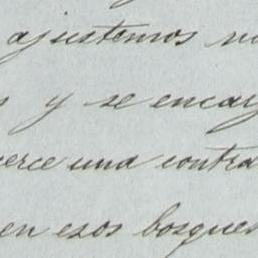 ajustemos
y se encar
erce una contra
en esos bosques